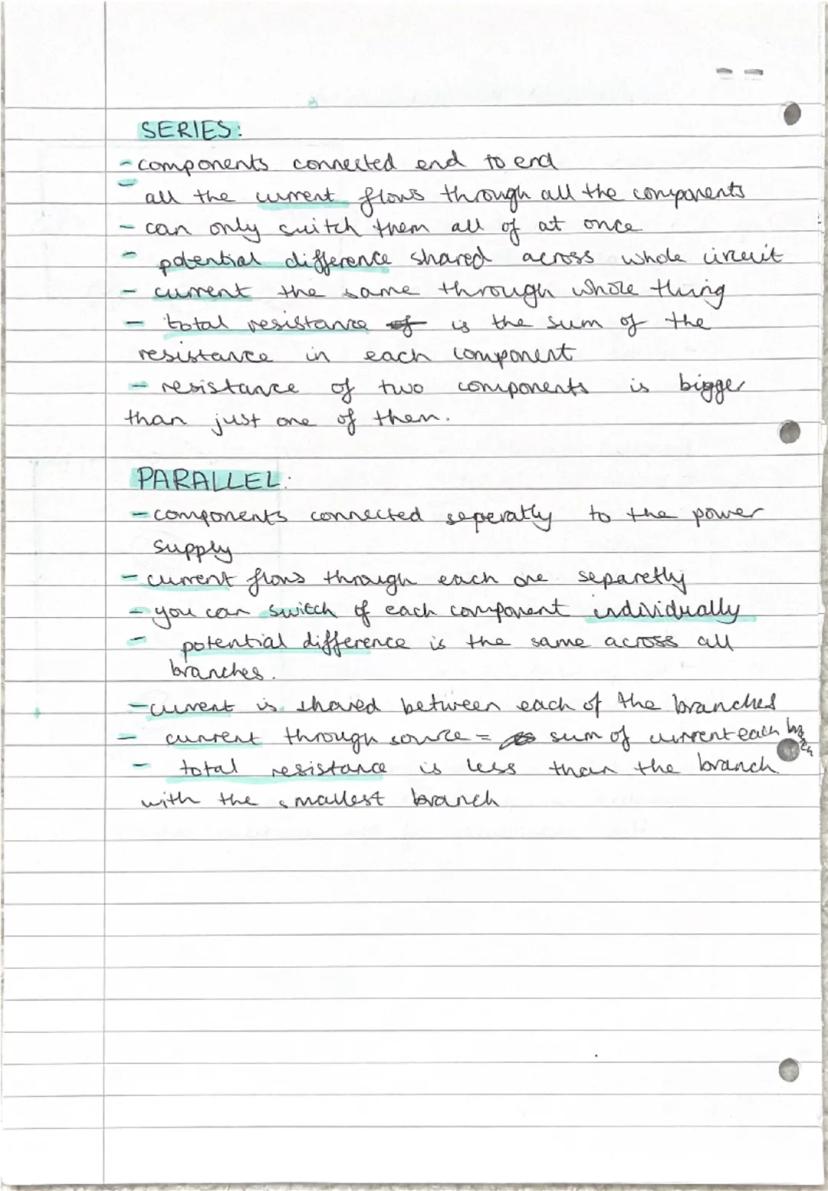 SERIES:
- components connected end to end
- all the current flows through all the components
- can only switch them all of at once
- potential difference shared across whole circuit
- current the same through whole thing
- total resistance of is the sum of the
resistance in each component
- resistance of two components is bigger
than just one of them.
PARALLEL:
- components connected seperatly to the power
supply
- current flows through each one separetly
- you can switch of each component individually
- potential difference is the same across all
branches.
- current is shared between each of the branches
- current through source = sum of current each
- total resistance is less than the branch
with the smallest branch